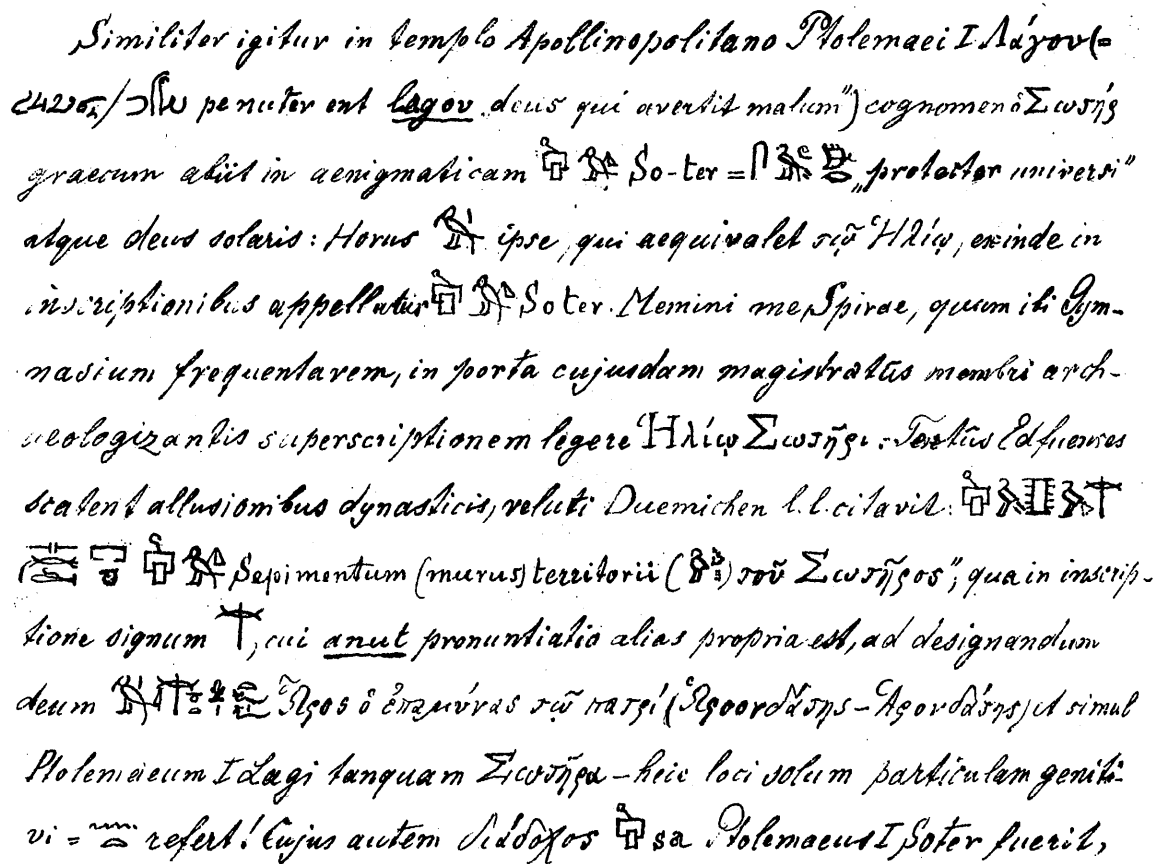 Similiter igitur in templo Apollinopolitano Ptolemaei I Λάγου (=
pe nuter ent lagou „deus qui avertit malum") cognomen ὁ Σωτήρ
graecum abiit in aenigmaticam So-ter = „protector universi"
atque deus solaris: Horus ipse, qui aequivalet τῷ Ἡλίῳ, exinde in
inscriptionibus appellatur Soter. Memini me Spirae, quum ibi Gym-
nasium frequentarem, in porta cujusdam magistratûs membri arch-
aeologizantis superscriptionem legere Ἡλίῳ Σωτῆρι. Textûs Edfuenses
scatent allusionibus dynasticis, veluti Duemichen l. l. citavit:
Sepimentum (murus) territorii ( ) τοῦ Σωτῆρος", qua in inscrip-
tione signum , cui anut pronuntiatio alias propria est, ad designandum
deum Ὧρος ὁ ἐπαμύνας τῷ πατρί (Ἁροορδάτης – Ἁρορδάτης) et simul
Ptolemaeum I Lagi tanquam Σωτῆρα – heic loci solum particulam geniti-
vi = refert! Cujus autem διάδοχος sa Ptolemaeus I Soter fuerit,